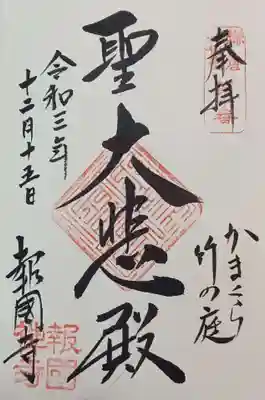 奉拝
かまくら
竹の庭
聖大悲殿
令和三年
十二月十五日
報國寺